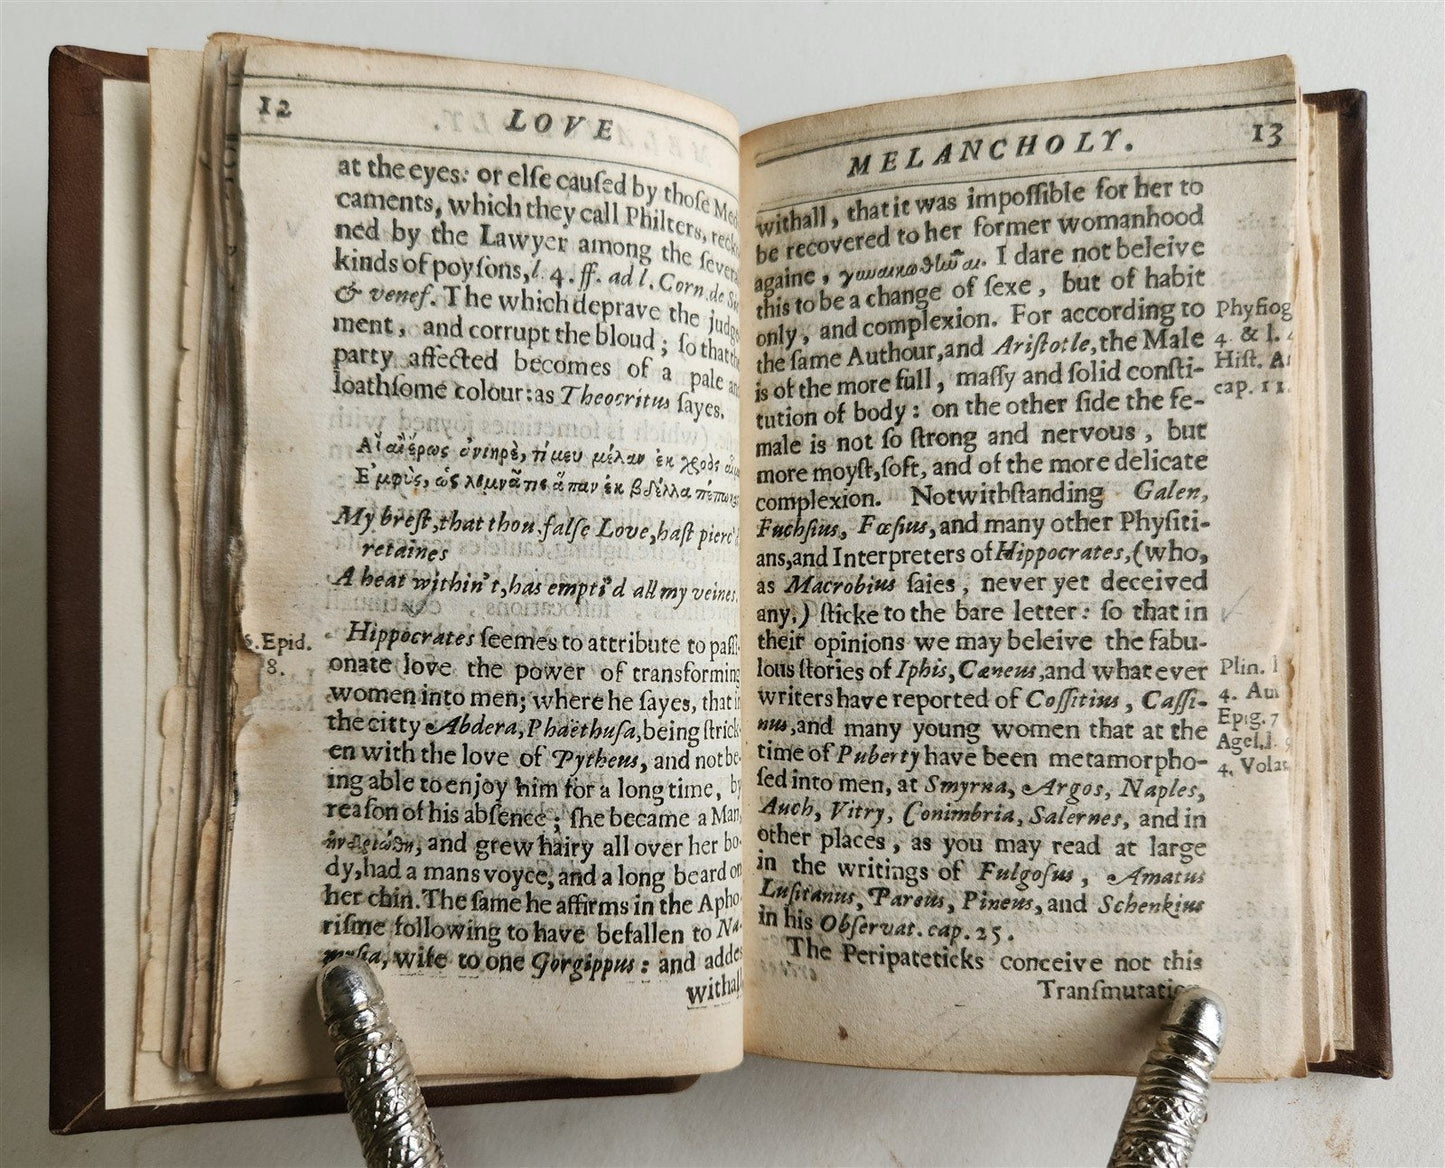 12 LOVE
at the eyes: or elſe cauſed by thoſe Med
caments, which they call Philters, reck
ned by the Lawyer among the ſevera
kinds of poyſons, l. 4. ff. ad l. Corn. de Si
& venef. The which deprave the judg
ment, and corrupt the bloud; ſo that the
party affected becomes of a pale an
loathſome colour: as Theocritus ſayes.
Αἲ αἲ ἔρως ἀνιηρὲ, τί μευ μέλαν ἐκ χροὸς
Ἐμφὺς, ὡς λιμνᾶτις ἅπαν ἐκ βδέλλα
My breſt, that thou, falſe Love, haſt pierc'
retaines
A heat within't, has empti'd all my veines.
6. Epid.
8.
Hippocrates ſeemes to attribute to paſſi-
onate love the power of transforming
women into men; where he ſayes, that i
the citty Abdera, Phaëthuſa, being ſtrick-
en with the love of Pytheus, and not be-
ing able to enjoy him for a long time, by
reaſon of his abſence; ſhe became a Man,
and grew hairy all over her bo-
dy, had a mans voyce, and a long beard on
her chin. The ſame he affirms in the Apho
riſme following to have befallen to Na-
wife to one Gorgippus: and addes
withall,
MELANCHOLY. 13
withall, that it was impoſſible for her to
be recovered to her former womanhood
againe, I dare not beleive
this to be a change of ſexe, but of habit
only, and complexion. For according to
the ſame Authour, and Ariſtotle, the Male
is of the more full, maſſy and ſolid conſti-
tution of body: on the other ſide the fe-
male is not ſo ſtrong and nervous, but
more moyſt, ſoft, and of the more delicate
complexion. Notwithſtanding Galen,
Fuchſius, Fœſius, and many other Phyſiti-
ans, and Interpreters of Hippocrates, (who,
as Macrobius ſaies, never yet deceived
any,) ſticke to the bare letter: ſo that in
their opinions we may beleive the fabu-
lous ſtories of Iphis, Cæneus, and what ever
writers have reported of Coſſitius, Caſſi-
nus, and many young women that at the
time of Puberty have been metamorpho-
ſed into men, at Smyrna, Argos, Naples,
Auch, Vitry, Conimbria, Salernes, and in
other places, as you may read at large
in the writings of Fulgoſus, Amatus
Luſitanus, Pareus, Pineus, and Schenkius
in his Obſervat. cap. 25.
The Peripateticks conceive not this
Tranſmutation
Phyſiog
4. & l. 4
Hiſt. A
cap. 11.
Plin. l
4. Au
Epig. 7
Agel. l. 9
4. Volat